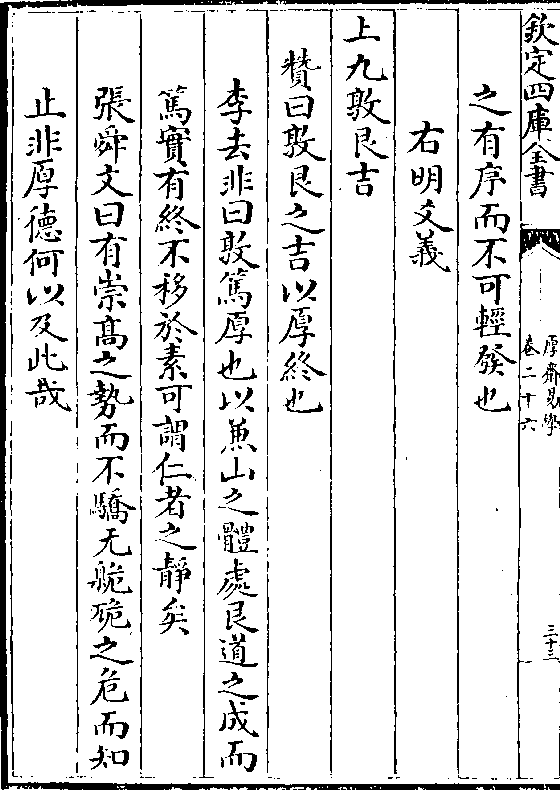 欽定四庫全書
厚齋易學
卷二十六
三十三
之有序而不可輕發也
右明爻義
上九敦艮吉
贊曰敦艮之吉以厚終也
李去非曰敦篤厚也以兼山之體處艮道之成而
篤實有終不移於素可謂仁者之靜矣
張舜文曰有崇髙之勢而不驕无臲硊之危而知
止非厚德何以及此哉